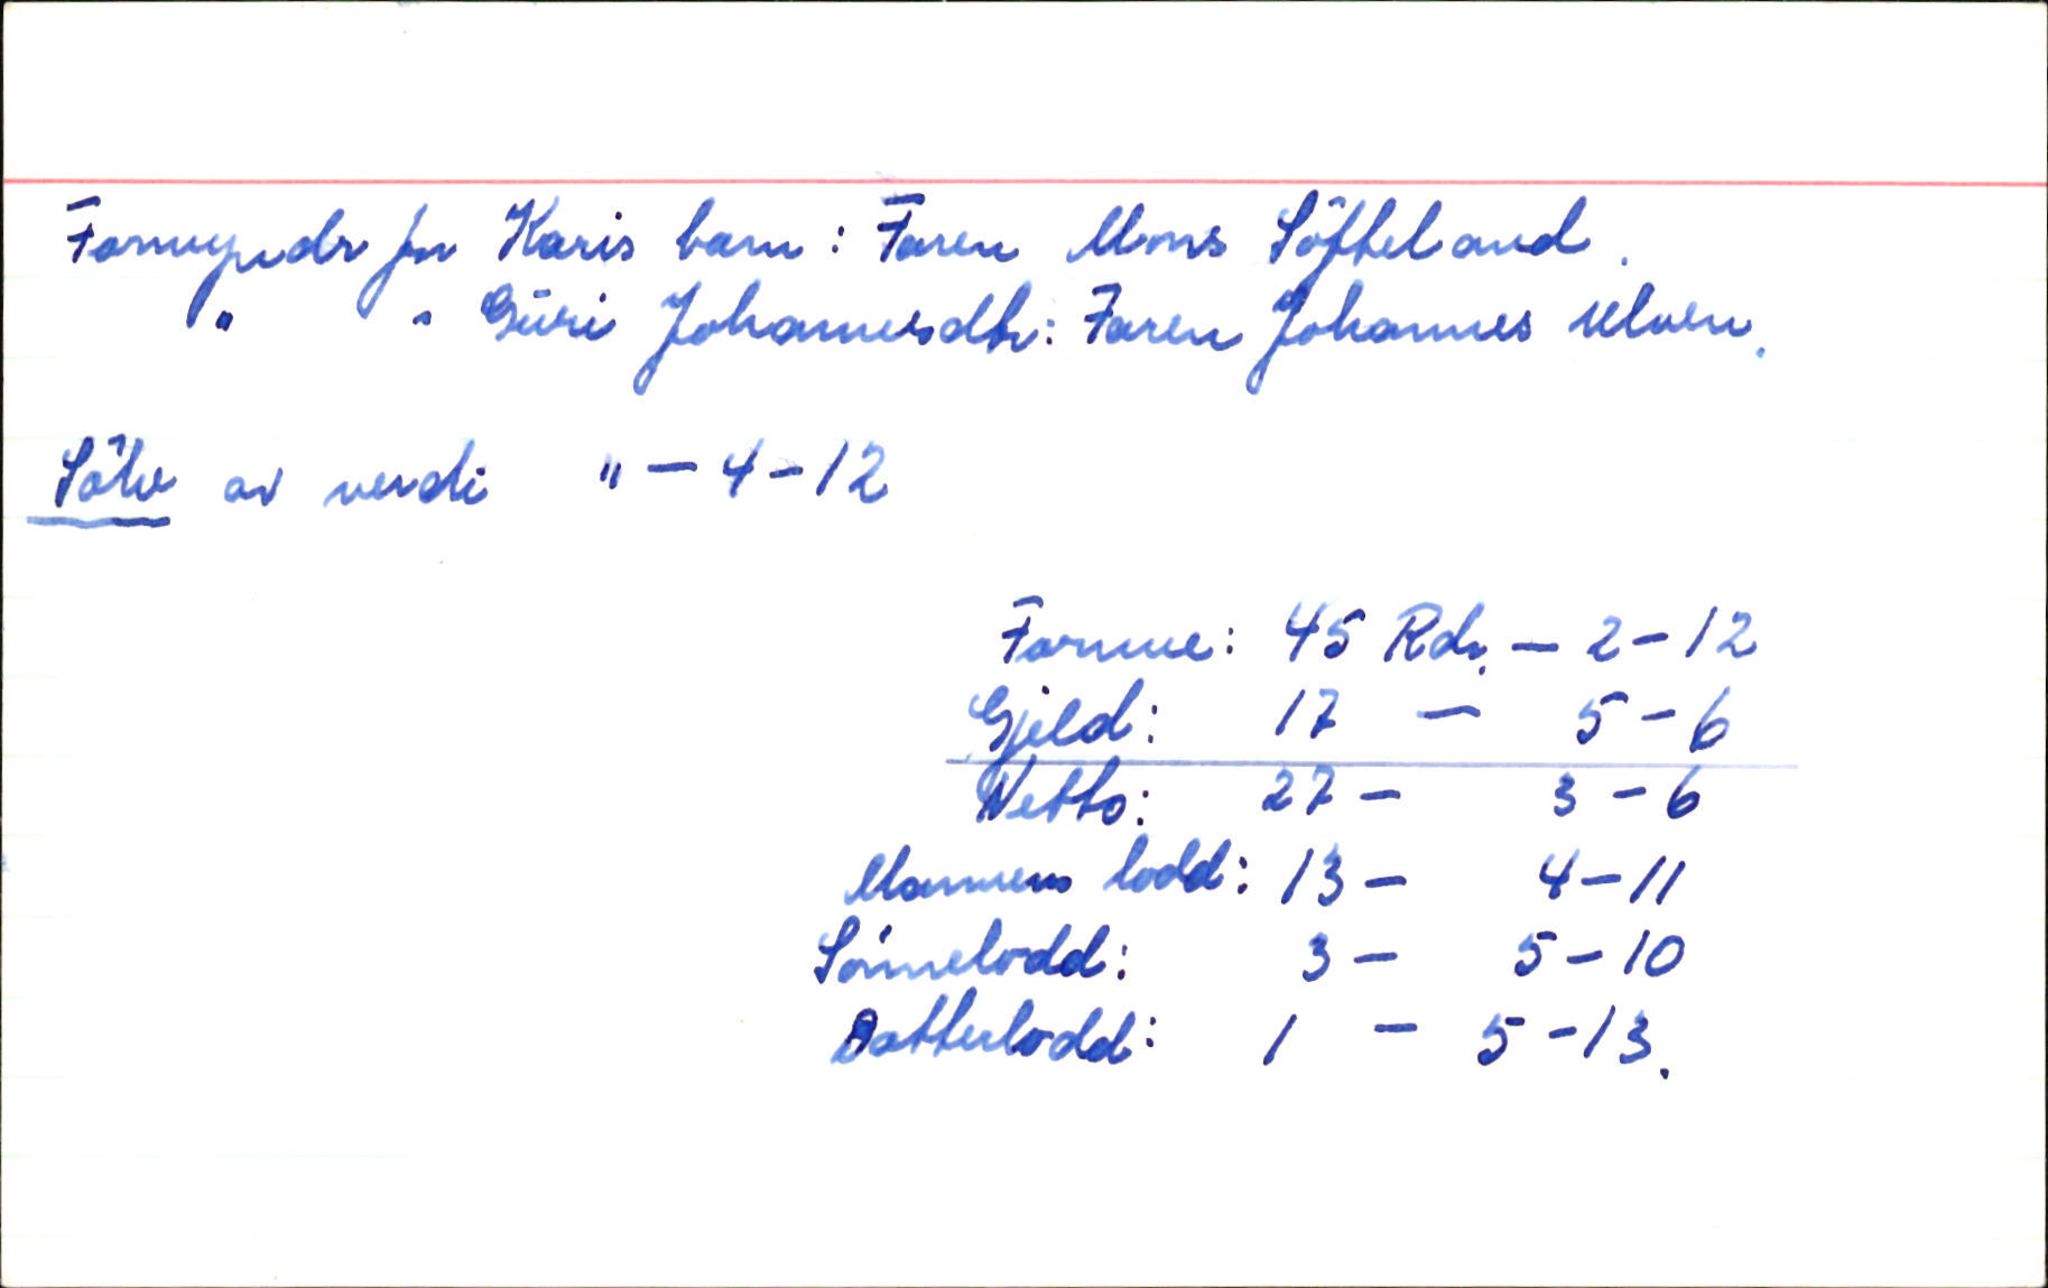 Formynder for Karis barn: Faren Mons Söfteland.
" " Guri Johannesdtr: Faren Johannes Ulven.
Sölv av verdi " - 4 - 12
Formue: 45 Rdr. - 2 - 12
Gjeld: 17 - 5 - 6
Netto: 27 - 3 - 6
Mannens lodd: 13 - 4 - 11
Sönnelodd: 3 - 5 - 10
Datterlodd: 1 - 5 - 13.